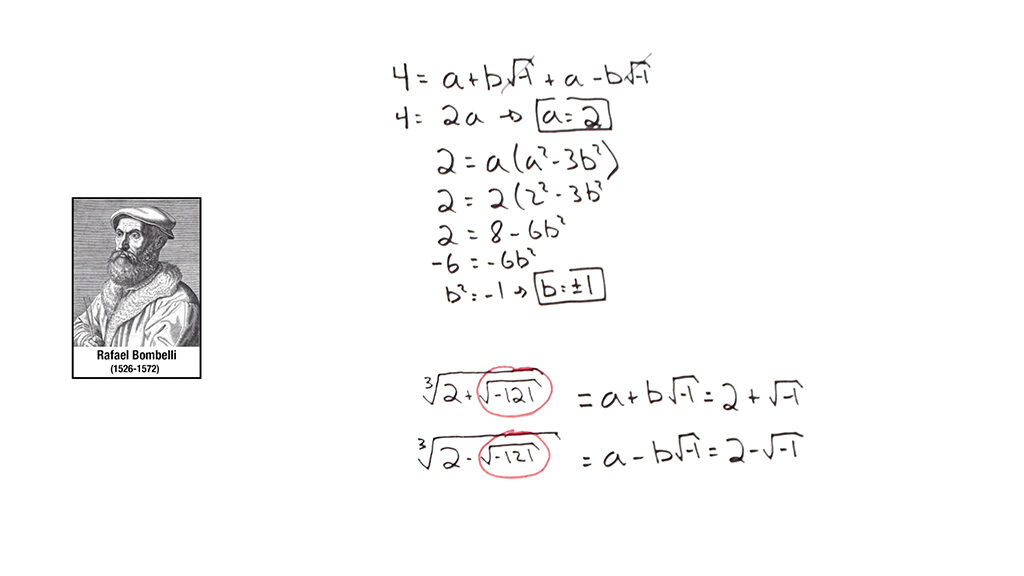 4 = a + b√-1 + a - b√-1
4 = 2a → a = 2
2 = a(a² - 3b²)
2 = 2(2² - 3b²
2 = 8 - 6b²
-6 = -6b²
b² = -1 → b = ±1
Rafael Bombelli
(1526-1572)
∛(2 + √-121) = a + b√-1 = 2 + √-1
∛(2 - √-121) = a - b√-1 = 2 - √-1